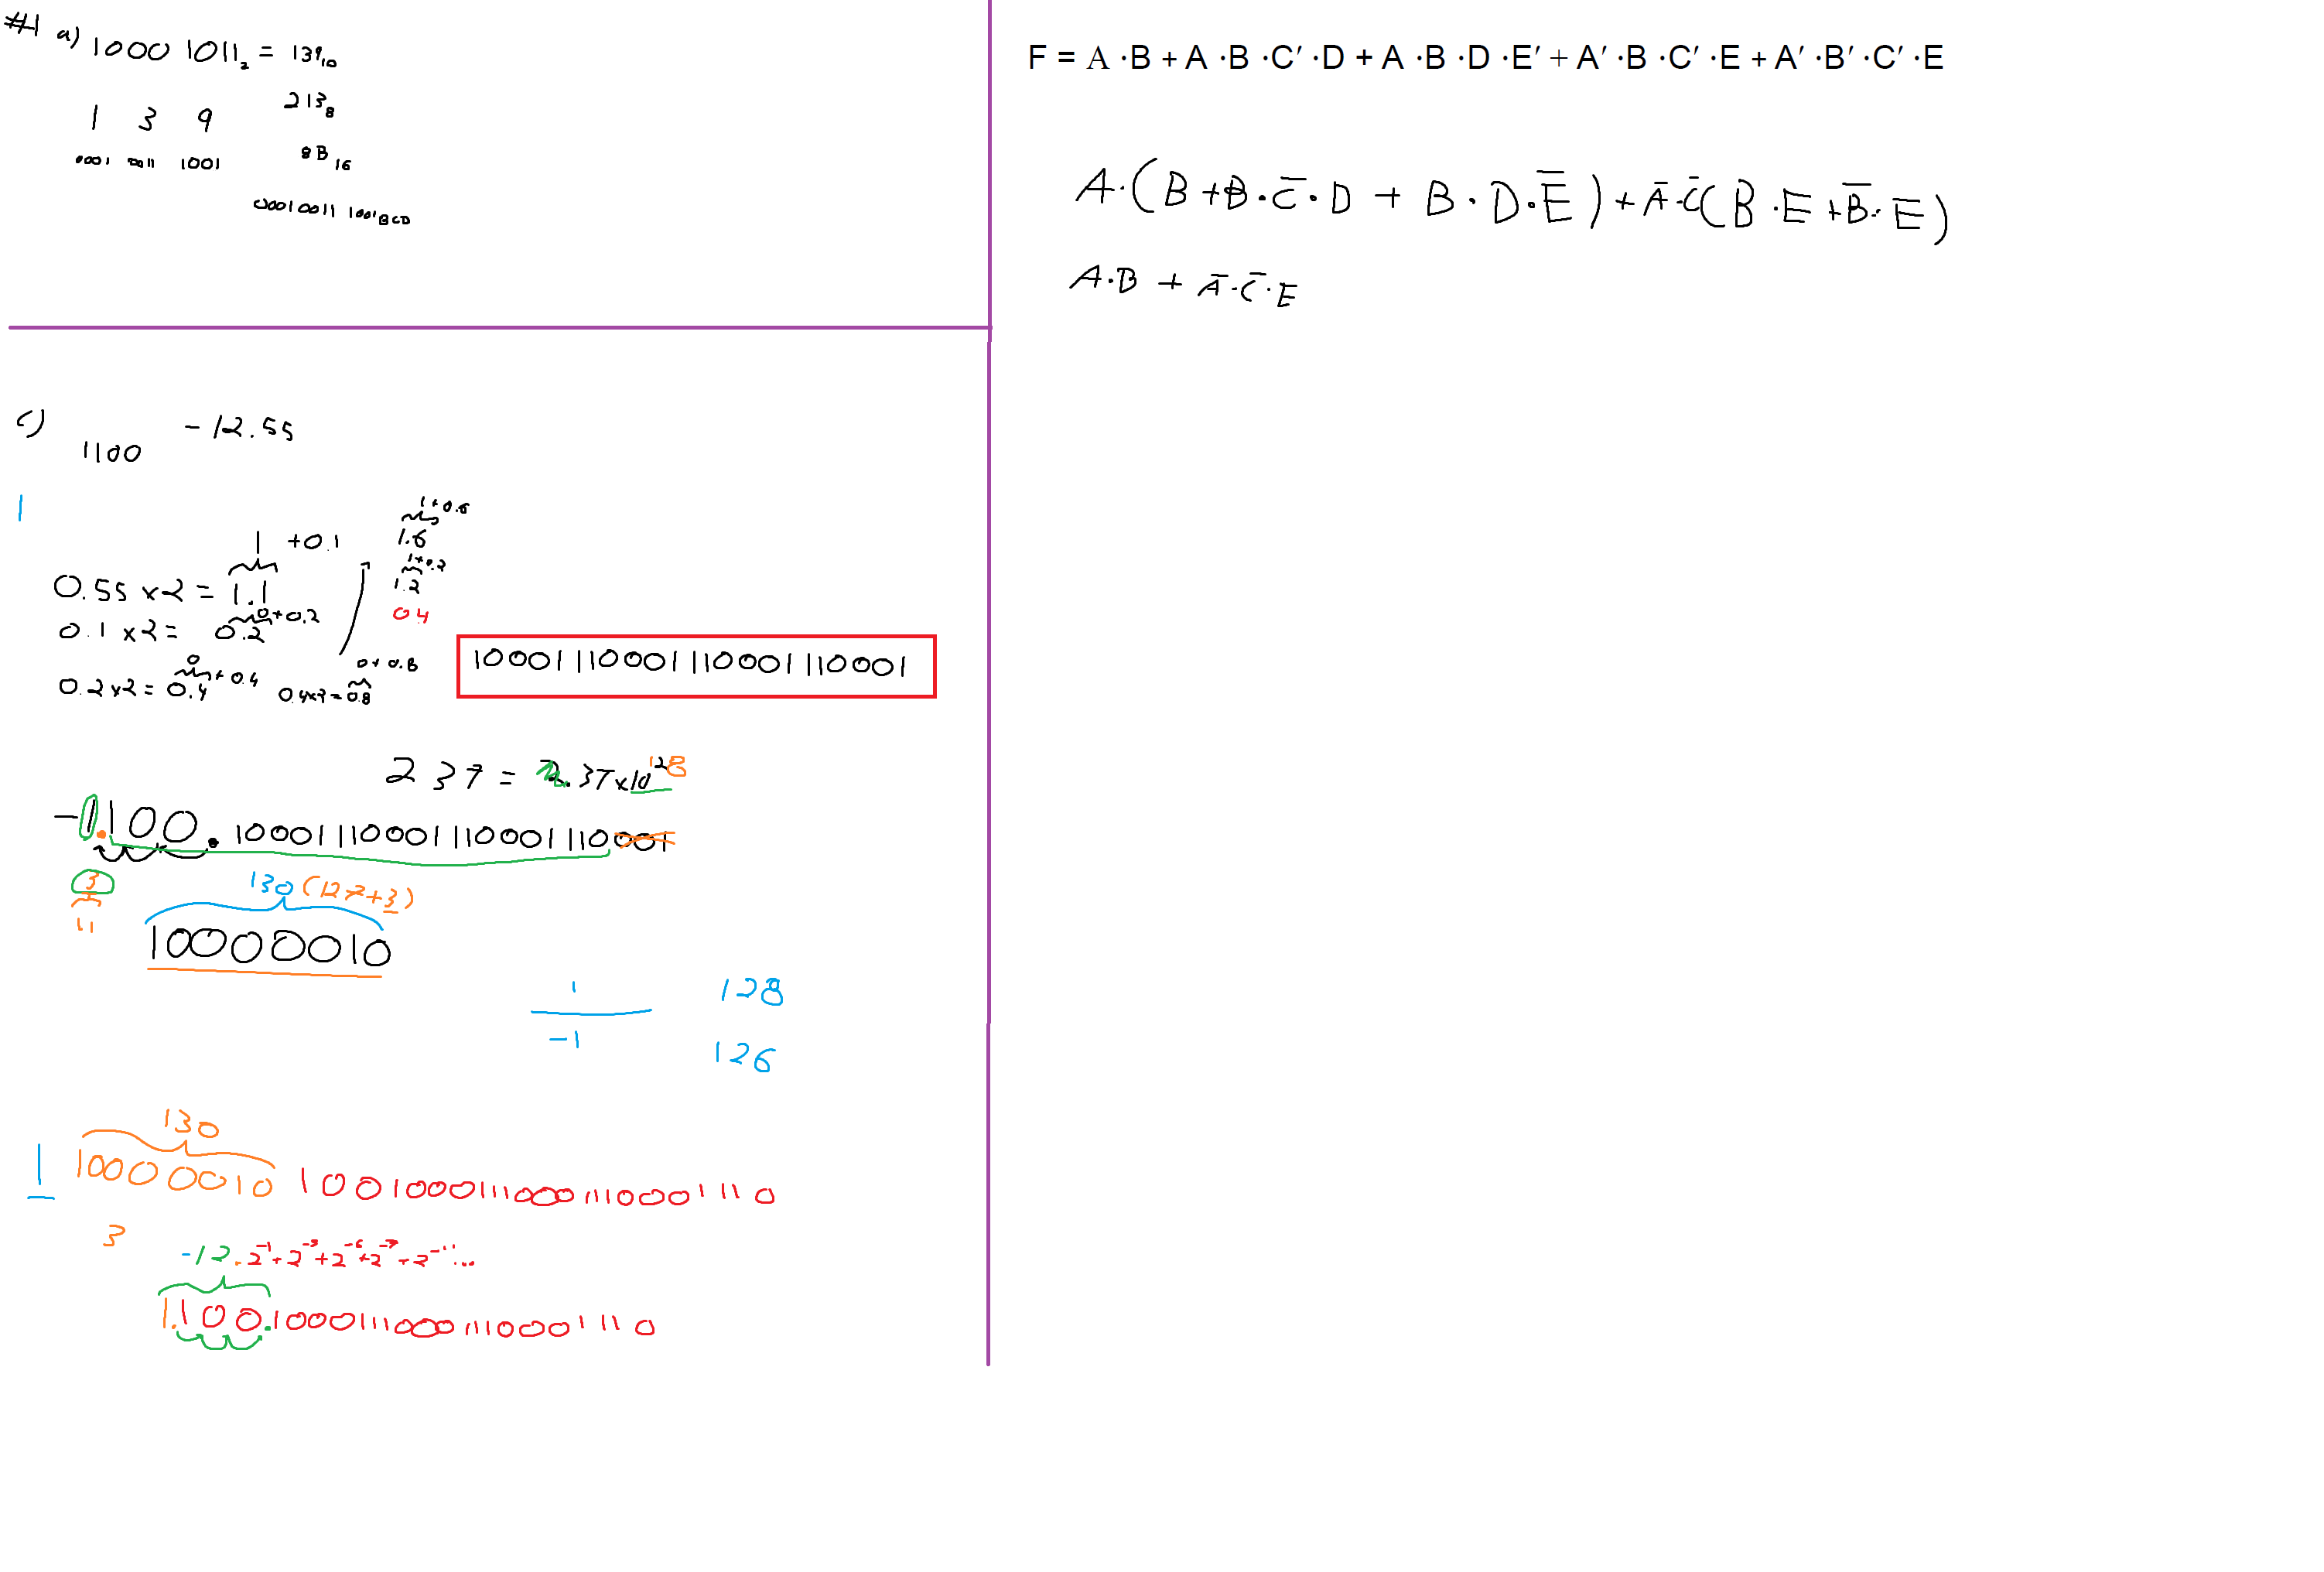 #1 a) 1000 1011₂ = 139₁₀
213₈
1 3 9
8B₁₆
0001 0011 1001
00010011 1001BCD
c) -12.55
1100
1
1+0.6
1 +0.1 1.6
1+0.2
0.55 x2 = 1.1 1.2
0+0.2 0.4
0.1 x2 = 0.2
0+0.4 0+0.8
0.2x2 = 0.4 0.4x2=0.8
10001110001110001110001
237 = 2.37x10¹²⁸
-1.100.10001110001110001110001
3 130 (127+3)
11
10000010
1 128
-1 126
130
1 10000010 10010001110001110001110
3
-12.2⁻¹+2⁻⁵+2⁻⁶+2⁻⁷+2⁻¹¹...
1.100.10001110001110001110
F = A ·B + A ·B ·C′ ·D + A ·B ·D ·E′ + A′ ·B ·C′ ·E + A′ ·B′ ·C′ ·E
A·(B+B·C̅·D + B·D·E̅)+A̅·C̅(B·E+B̅·E)
A·B + A̅·C̅·E